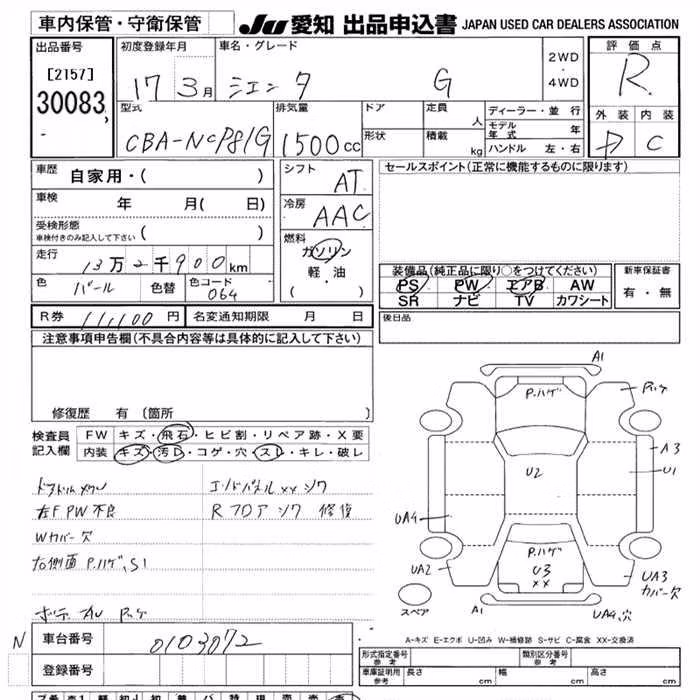 車内保管・守衛保管
JU 愛知 出品申込書 JAPAN USED CAR DEALERS ASSOCIATION
出品番号
[2157]
30083
初度登録年月
17 3月
車名・グレード
シエンタ G
2WD
・
4WD
評価点
R
外装 内装
D C
型式
CBA-NCP81G
排気量
1500cc
ドア
形状
定員 人
積載 kg
ディーラー・並行
モデル年式 年
ハンドル 左・右
車歴 自家用・( )
車検 年 月( 日)
受検形態
車検付きのみ記入して下さい ( )
走行 13万2千900km
色 パール 色替 色コード 064
シフト AT
冷房 AAC
燃料
ガソリン
軽・油
( )
セールスポイント(正常に機能するものに限ります)
装備品(純正品に限り○をつけてください)
PS PW エアB AW
SR ナビ TV カワシート
新車保証書
有・無
後日品
R券 11,100円 名変通知期限 月 日
注意事項申告欄(不具合内容等は具体的に記入して下さい)
修復歴 有(箇所 )
検査員記入欄
FW キズ・飛石・ヒビ割・リペア跡・X要
内装 キズ・汚レ・コゲ・穴・スレ・キレ・破レ
左F PW不良
Wカバー欠
右側面 P.ハゲ、S1
エンドパネルXXシワ
Rフロアシワ 修復
A1
P.ハゲ
A3
U1
U2
UA4
UA2
P.ハゲ
U3
XX
UA3
カバー欠
スペア
A1
UA4、穴
A-キズ E-エクボ U-凹み W-補修跡 S-サビ C-腐食 XX-交換済
N
車台番号 0103072
登録番号
形式指定番号 参考
類別区分番号 参考
車庫証明用 参考 長さ cm 幅 cm 高さ cm